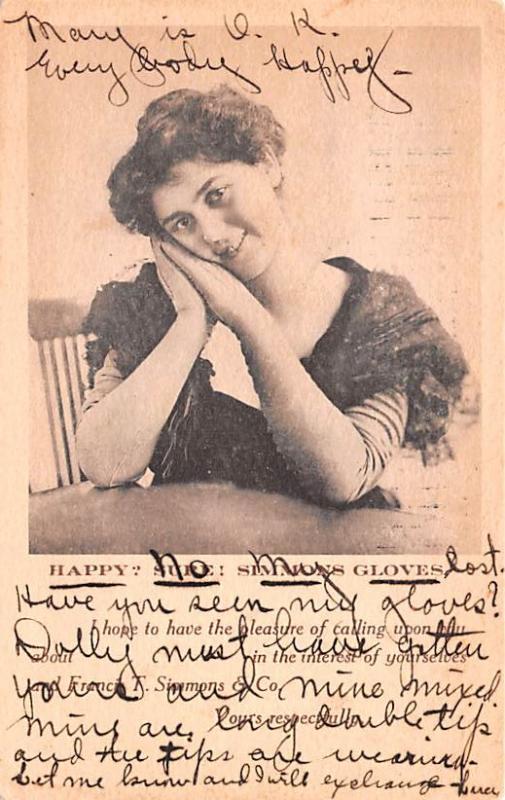 Mary is O. K.
Every body Happy –
HAPPY? SURE! SIMMONS GLOVES.
No My lost.
Have you seen my gloves?
I hope to have the pleasure of calling upon you
Dolly must have gotten
about in the interest of yourselves
and Francis T. Simmons & Co.
yours and mine mixed
Yours respectfully,
mine are long double tip
and the tips are wearing.
Let me know and I will exchange –